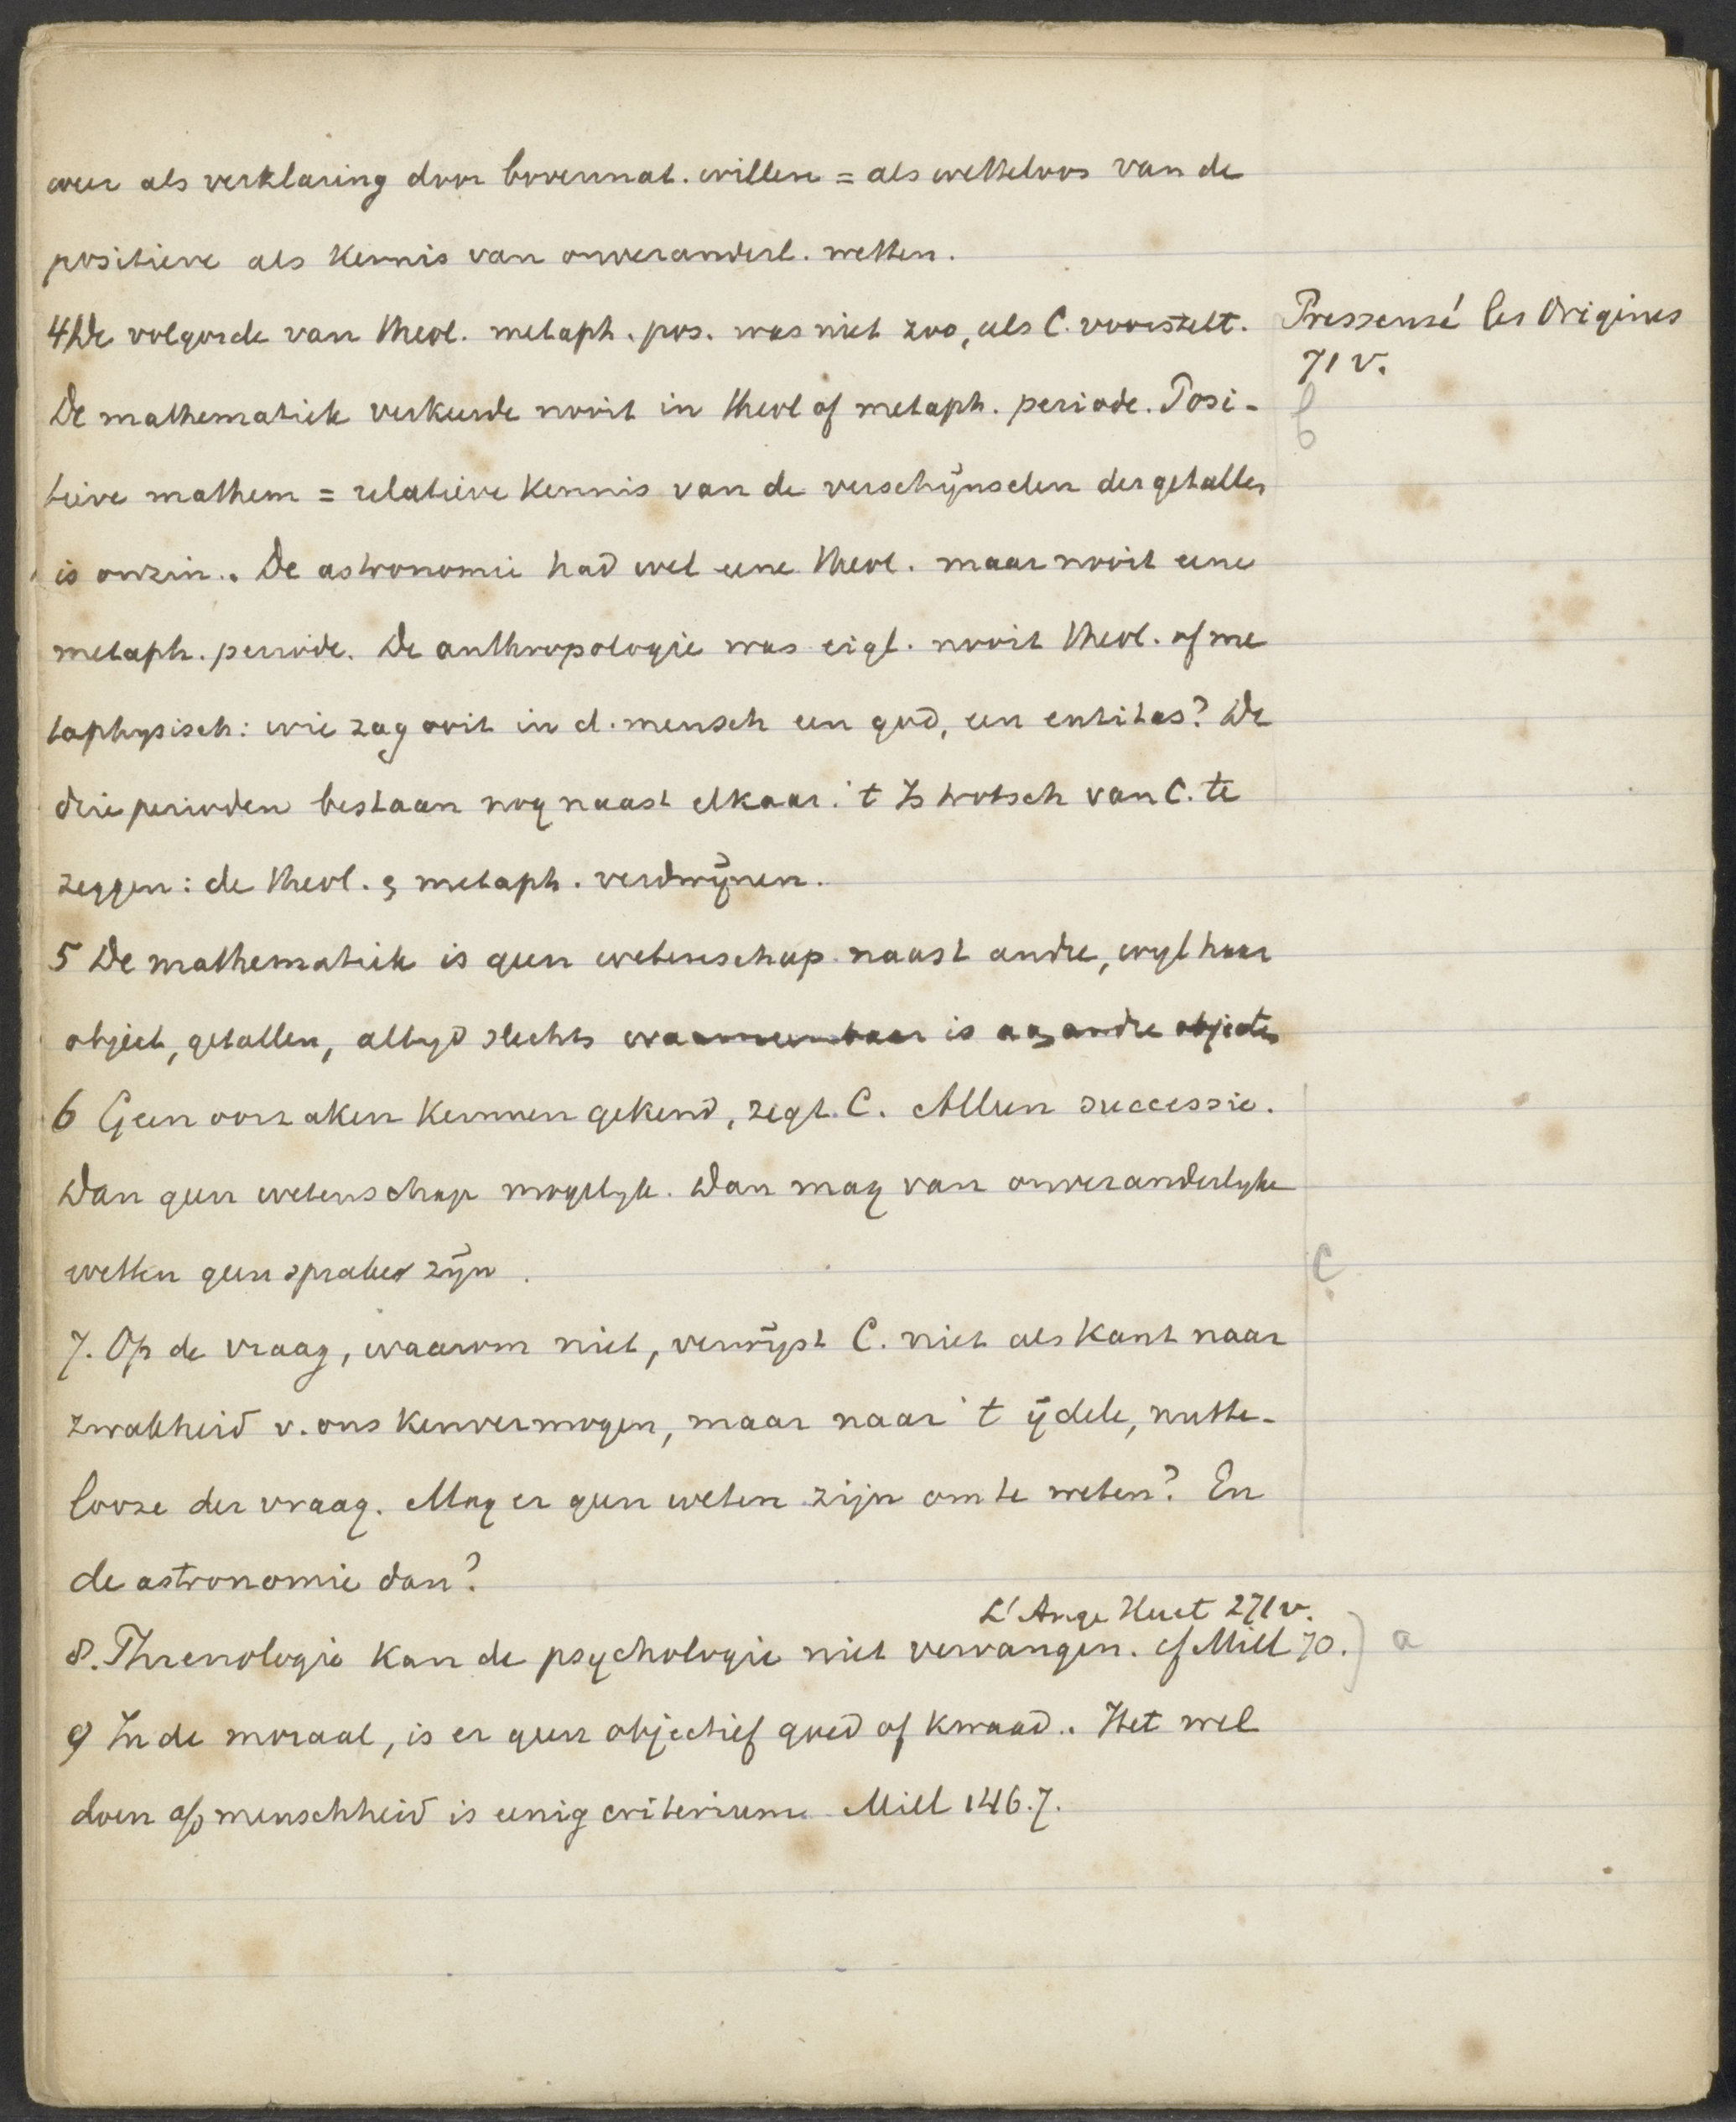 weer als verklaring door bovennat. willen = als wetteloos van de
positieve als kennis van onveranderl. wetten.
4 De volgorde van theol. metaph. pos. was niet zoo, als C. voorstelt.
Pressensé les Origines
71 v.
De mathematiek verkeerde nooit in theol of metaph. periode. Posi-
b
tieve mathem = relatieve kennis van de verschijnselen der getallen
is onzin. De astronomie had wel eene theol. maar nooit eene
metaph. periode. De anthropologie was eigl. nooit theol. of me
taphysisch: wie zag ooit in d. mensch een god, een entitas? De
drie perioden bestaan nog naast elkaar. 't Is trotsch van C. te
zeggen: de theol. & metaph. verdwijnen.
5 De mathematiek is geen wetenschap naast andre, wyl haar
object, getallen, altyd slechts waarneembaar is aan andre objecten
6 Geen oorzaken kunnen gekend, zegt C. Alleen successie.
Dan geen wetenschap mogelyk. Dan mag van onveranderlyke
wetten geen sprake zijn.
c
7. Op de vraag, waarom niet, verwijst C. niet als Kant naar
zwakheid v. ons kenvermogen, maar naar 't ijdele, nutte-
looze der vraag. Mag er geen weten zijn om te weten? En
de astronomie dan?
L'Ange Huet 271 v.
8. Phrenologie kan de psychologie niet vervangen. cf Mill 70.) a
9 In de moraal, is er geen objectief goed of kwaad. Het wel
doen op menschheid is eenig criterium Mill 146.7.